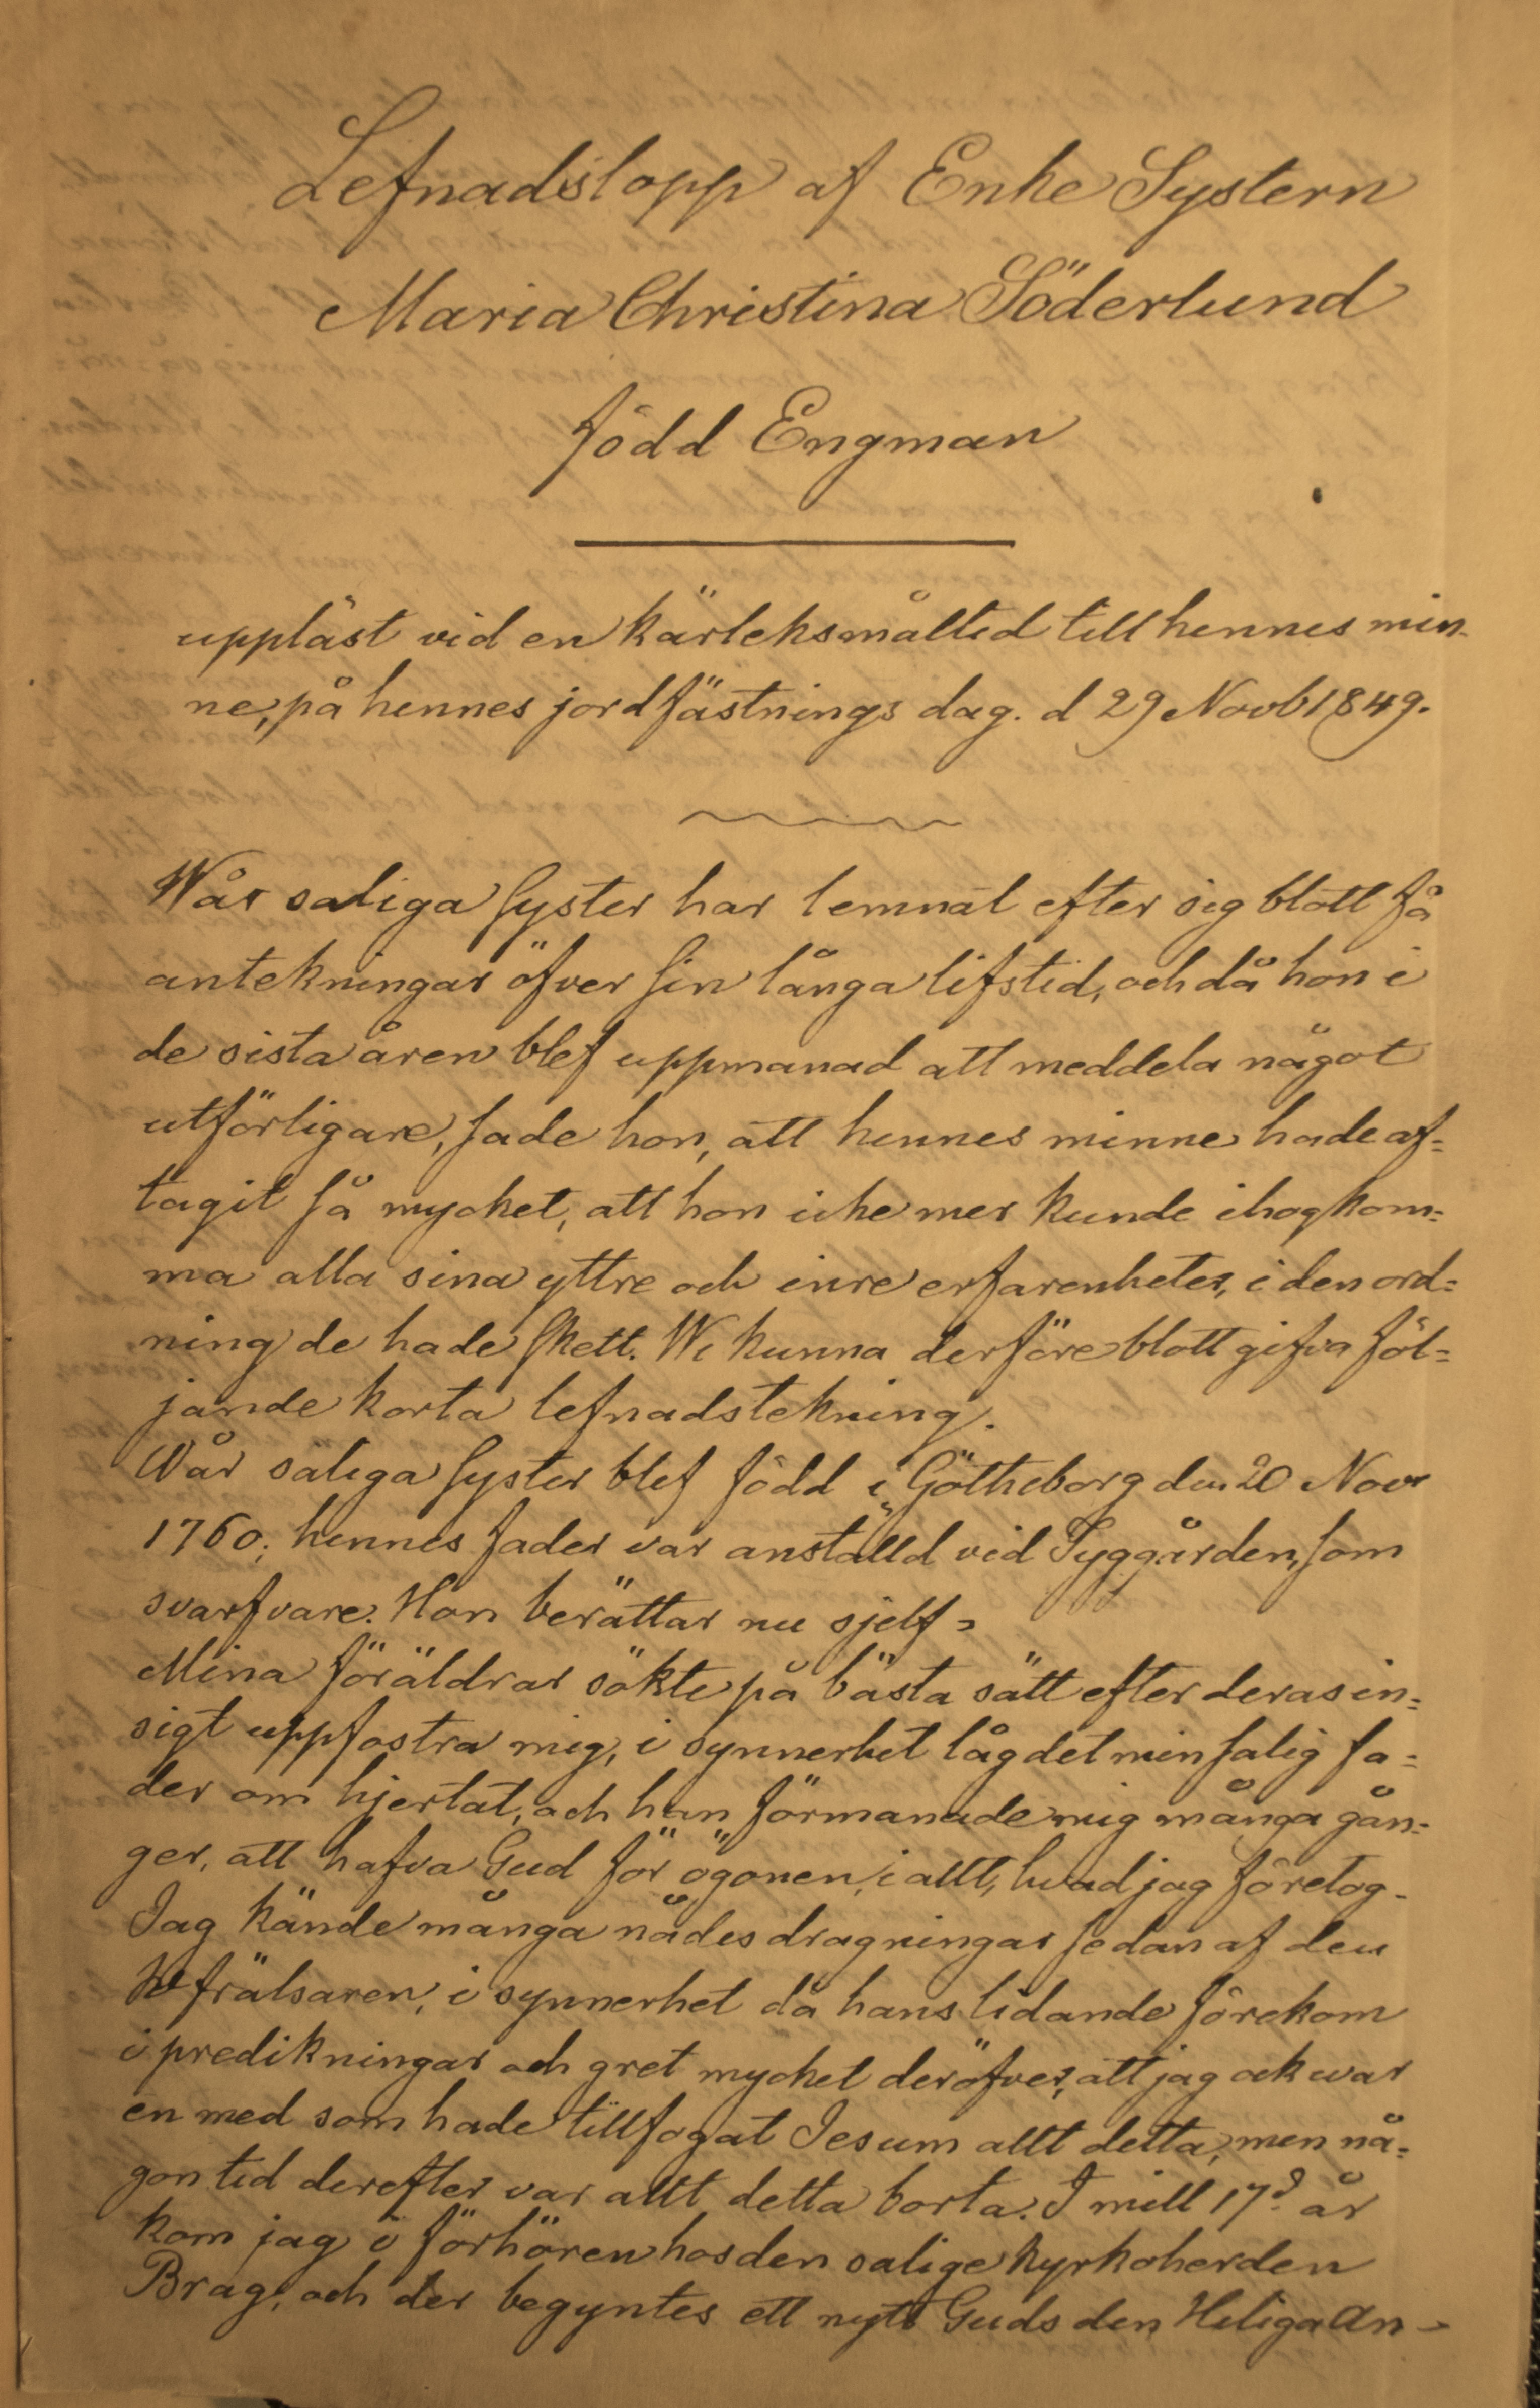 Lefnadslopp af Enke Systern
Maria Christina Söderlund
född Engman
uppläst vid en kärleksmåltid till hennes min-
ne, på hennes jordfästnings dag. d 29 Novb 1849.
Wår saliga syster har lemnat efter sig blott få
antekningar öfver sin långa lifstid, och då hon i
de sista åren blef uppmanad att meddela något
utförligare, sade hon, att hennes minne hade af=
tagit så mycket, att hon icke mer kunde ihogkom=
ma alla sina yttre och inre erfarenheter, i den ord=
ning de hade skett. Wi kunna derföre blott gifva föl=
jande korta lefnadstekning.
Wår saliga syster blef född i Götheborg den 20 Novr
1760; hennes fader var anställd vid Tyggården, som
svarfvare. Hon berättar nu sjelf
Mina föräldrar sökte på bästa sätt efter deras in=
sigt uppfostra mig, i synnerhet låg det min salig fa=
der om hjertat, och han förmanade mig många gån=
ger, att hafva Gud för ögonen, i allt, hvad jag företog-
Jag kände många nådes dragningar sedan af den
frälsaren, i synnerhet då hans lidande förekom
i predikningar och gret mycket deröfver, att jag ock war
en med som hade tillfogat Jesum allt detta, men nå=
gon tid derefter var allt detta borta. I mitt 17d. år
kom jag i förhören hos den salige kyrkoherden
Brag, och der begyntes ett nytt Guds den Heliga An-